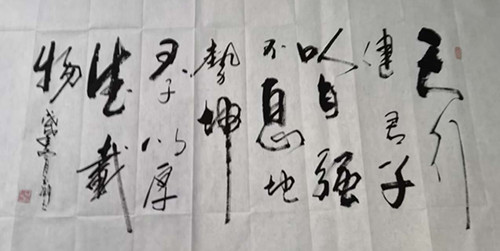 天行
健君子
以自强
不息地
势坤
君子以厚
德载
物